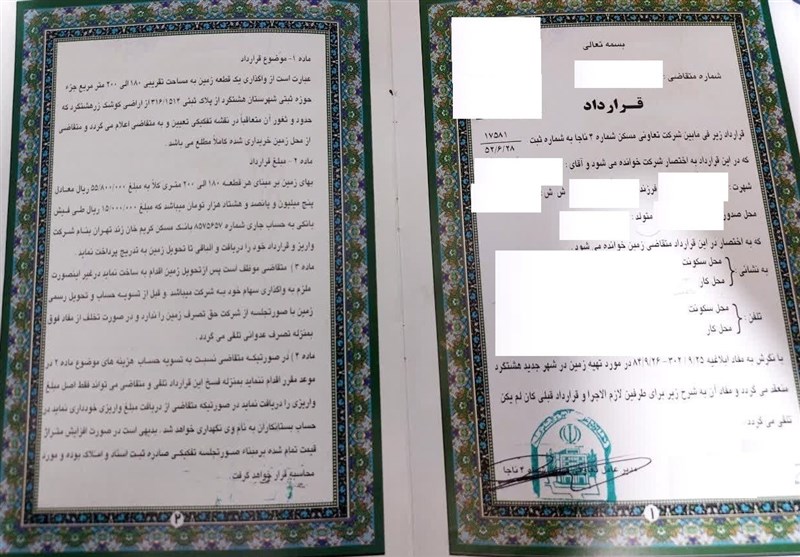 بسمه تعالی
شماره متقاضی :
قرارداد
قرارداد زیر فی مابین شرکت تعاونی مسکن شماره ۴ ناجا به شماره ثبت ۱۷۵۸۱
۵۲/۶/۲۸
که در این قرارداد به اختصار شرکت خوانده می شود و آقای :
شهرت : فرزند ش ش
محل صدور متولد :
که به اختصار در این قرارداد متقاضی زمین خوانده می شود .
به نشانی : محل سکونت
محل کار
تلفن : محل سکونت
محل کار
با نگرش به مفاد ابلاغیه ۳۰۲/۹/۲۵ – ۸۲/۹/۲۶ در مورد تهیه زمین در شهر جدید هشتگرد
منعقد می گردد و مفاد آن به شرح زیر برای طرفین لازم الاجرا و قرارداد قبلی کان لم یکن
تلقی می گردد .
مدیر عامل ۴ ناجا
۱
ماده ۱- موضوع قرارداد
عبارت است از واگذاری یک قطعه زمین به مساحت تقریبی ۱۸۰ الی ۲۰۰ متر مربع جزء
حوزه ثبتی شهرستان هشتگرد از پلاک ثبتی ۳۱۶/۱۵۱۲ از اراضی کوشک زرهشتگرد که
حدود و ثغور آن متعاقباً در نقشه تفکیکی تعیین و به متقاضی اعلام می گردد و متقاضی
از محل زمین خریداری شده کاملاً مطلع می باشد .
ماده ۲- مبلغ قرارداد
بهای زمین بر مبنای هر قطعه ۱۸۰ الی ۲۰۰ متری کلاً به مبلغ ۵۵/۸۰۰/۰۰۰ ریال معادل
پنج میلیون و پانصد و هشتاد هزار تومان میباشد که مبلغ ۱۵/۰۰۰/۰۰۰ ریال طی فیش
بانکی به حساب جاری شماره ۸۵۷۵۶۵۷ بانک مسکن کریم خان زند تهران بنام شرکت
واریز و قرارداد خود را دریافت و الباقی تا تحویل زمین به تدریج پرداخت نماید.
ماده ۳ ) متقاضی موظف است پس ازتحویل زمین اقدام به ساخت نماید درغیر اینصورت
ملزم به واگذاری سهام خود به شرکت میباشد و قبل از تسویه حساب و تحویل رسمی
زمین با صورتجلسه از شرکت حق تصرف زمین را ندارد و در صورت تخلف از مفاد فوق
بمنزله تصرف عدوانی تلقی می گردد .
ماده ۴ ) در صورتیکه متقاضی نسبت به تسویه حساب هزینه های موضوع ماده ۲ در
موعد مقرر اقدام ننماید بمنزله فسخ این قرارداد تلقی و متقاضی می تواند فقط اصل مبلغ
واریزی را دریافت نماید در صورتیکه متقاضی از دریافت مبلغ واریزی خودداری نماید در
حساب بستانکاران به نام وی نگهداری خواهد شد . بدیهی است در صورت افزایش متراژ
قیمت تمام شده برمبنای صورتجلسه تفکیکی صادره ثبت اسناد و املاک بوده و مورد
محاسبه قرار خواهد گرفت .
۲